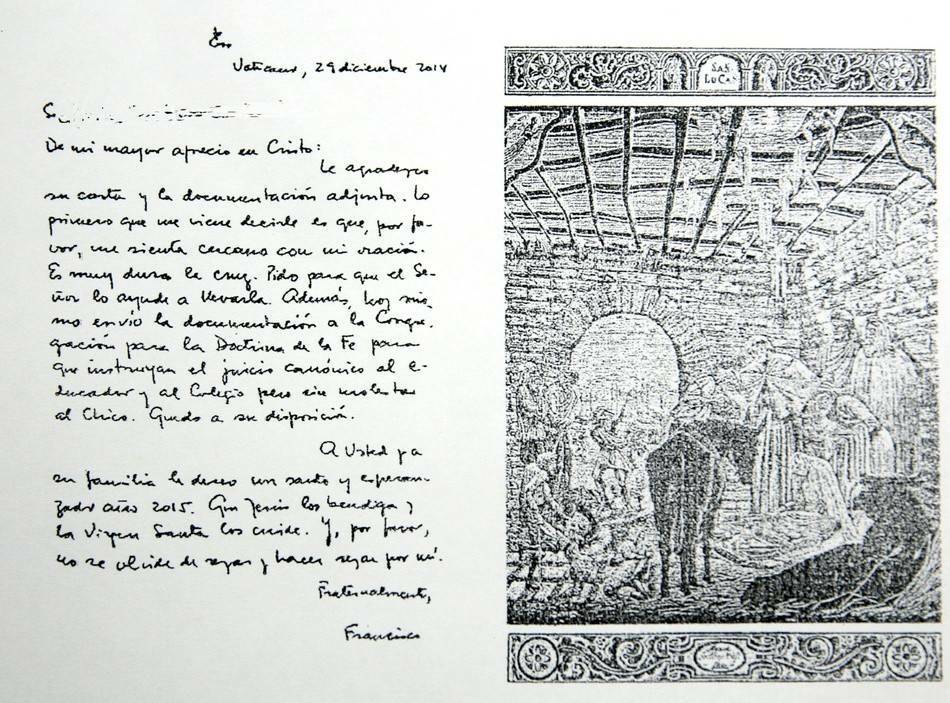 Vaticano, 29 diciembre 2014
De mi mayor aprecio en Cristo:
Le agradezco
su carta y la documentación adjunta. Lo
primero que me viene decirle es que, por fa-
vor, me sienta cercano con mi oración.
Es muy dura la cruz. Pido para que el Se-
ñor lo ayude a llevarla. Además, hoy mis
mo envío la documentación a la Congre.
gación para la Doctrina de la Fe para
que instruyan el juicio canónico al e-
ducador y al Colegio pero sin molestar
al Chico. Quedo a su disposición.
A Usted y a
su familia le deseo un santo y esperan-
zado año 2015. Que Jesús los bendiga y
la Virgen Santa los cuide. Y, por favor,
no se olvide de rezar y hacer rezar por mí.
Fraternalmente,
Francisco
SAN
LUCAS